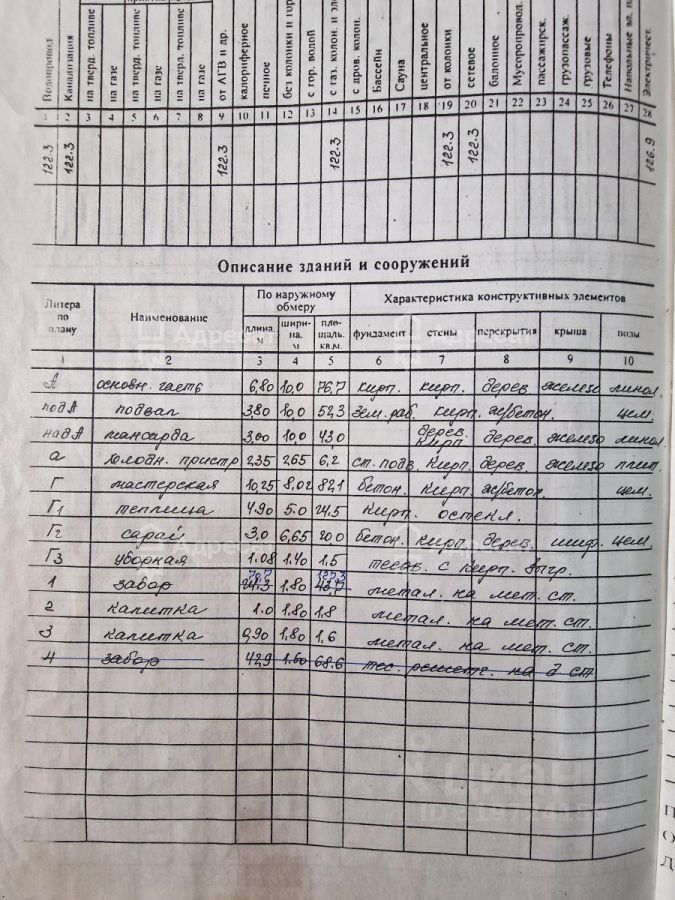 Водопровод
Канализация
на тверд. топливе
на газе
на тверд. топливе
на газе
на тверд. топливе
на газе
от АГВ и др.
калориферное
печное
без колонки и гор
с гор. водой
с газ. колон. и эл
с дров. колон.
Бассейн
Сауна
центральное
от колонки
сетевое
балонное
Мусоропровол.
пассажирск.
грузопассаж.
грузовые
Телефоны
Напольные эл. п
Электричест.
1 2 3 4 5 6 7 8 9 10 11 12 13 14 15 16 17 18 19 20 21 22 23 24 25 26 27 28
122.3 122.3 122.3 122.3 122.3 122.3 126.9
Описание зданий и сооружений
Литера по плану Наименование По наружному обмеру Характеристика конструктивных элементов
длина. м шири-на. м пло-щаль. кв.м. фундамент стены перекрытия крыша полы
1 2 3 4 5 6 7 8 9 10
А основн. часть 6,80 10,0 76,7 кирп. кирп. дерев. железо линол.
подА подвал 3,80 10,0 52,3 зем. раб. кирп. ж/бетон. цем.
надА мансарда 3,00 10,0 43,0 дерев. кирп. дерев. железо линол
а холодн. пристр 2,35 2,65 6,2 ст. подв. кирп. дерев. железо плит.
Г мастерская 10,25 8,02 82,1 бетон. кирп. ж/бетон. цем.
Г1 теплица 4.90 5.0 24.5 кирп. остекл.
Г2 сарай 3,0 6,65 20.0 бетон. кирп. дерев. шиф. цем.
Г3 уборная 1.08 1.40 1.5 тесов. с кирп. выгр.
1 забор 24.3 1.80 43,7 метал. на мет. ст.
2 калитка 1.0 1.80 1.8 метал. на мет. ст.
3 калитка 0,90 1,80 1,6 метал. на мет. ст.
4 забор 42,9 1.60 68.6 тес. решетч. на д ст